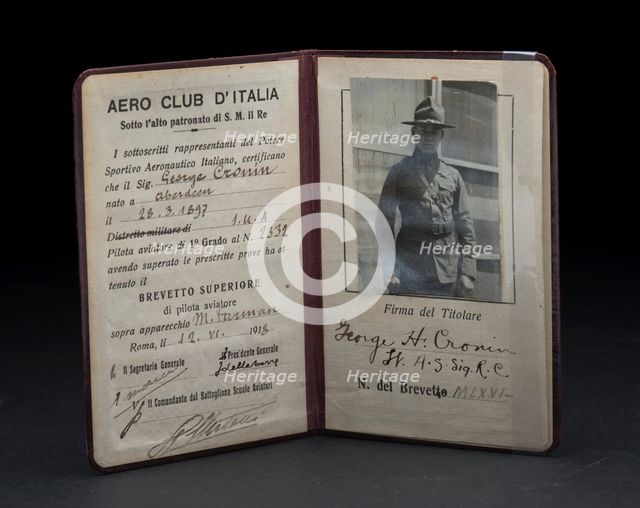 AERO CLUB D'ITALIA
Sotto l'alto patronato di S. M. il Re
I sottoscritti rappresentanti del Potere
Sportivo Aeronautico Italiano, certificano
che il Sig. George Cronin
nato a Aberdeen
il 28.3.1897
Distretto militare di
Pilota aviatore di 1º Grado al N. 2332
avendo superato le prescritte prove ha ot-
tenuto il
BREVETTO SUPERIORE
di pilota aviatore
sopra apparecchio M. Farman
Roma, li 12. VI. 1918
Il Segretario Generale
Il Presidente Generale
Il Comandante del Battaglione Scuole Aviatori
Firma del Titolare
George H. Cronin
N. del Brevetto MLXVI
Heritage
Heritage
Heritage
Heritage
Heritage
Heritage
Heritage
Heritage
C